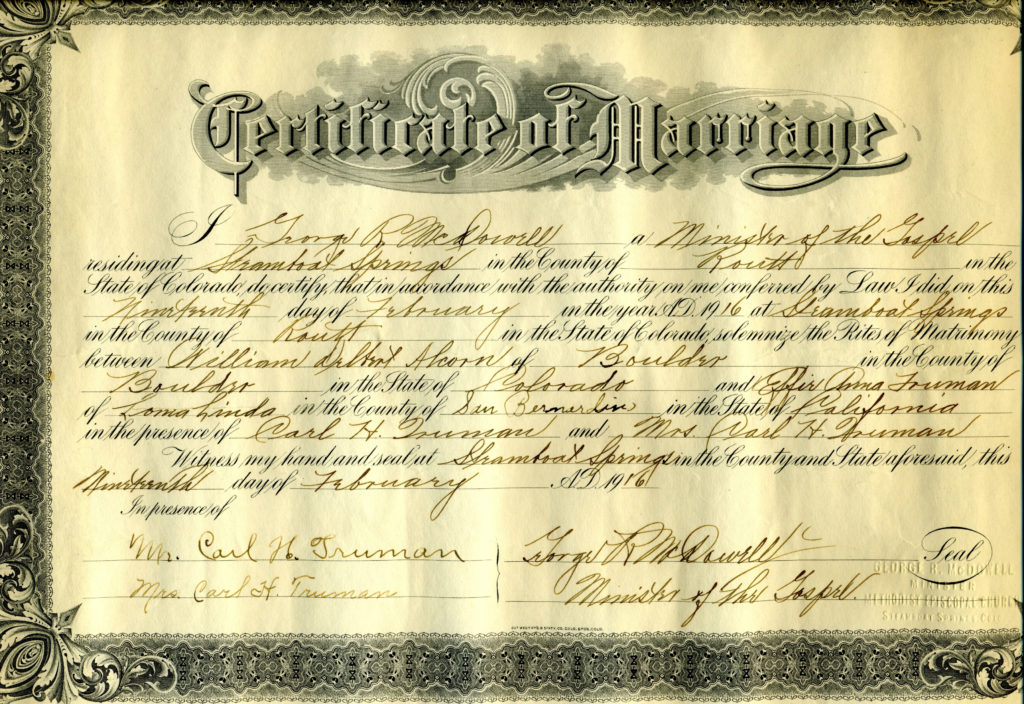 Certificate of Marriage
I George R McDowell a Minister of the Gospel
residing at Steamboat Springs in the County of Routt in the
State of Colorado, do certify, that in accordance with the authority on me conferred by Law, I did, on this
Nineteenth day of February in the year A.D. 1916 at Steamboat Springs
in the County of Routt in the State of Colorado, solemnize the Rites of Matrimony
between William Delbert Alcorn of Boulder in the County of
Boulder in the State of Colorado and Effie Anna Truman
of Loma Linda in the County of San Bernerdin in the State of California
in the presence of Carl H. Truman and Mrs. Carl H. Truman
Witness my hand and seal at Steamboat Springs in the County and State aforesaid, this
Nineteenth day of February A.D. 1916
In presence of
Mr. Carl H. Truman
Mrs. Carl H. Truman
George R McDowell
Minister of the Gospel.
Seal
GEORGE R. McDOWELL
MINISTER
METHODIST EPISCOPAL CHURCH
STEAMBOAT SPRINGS, COLO.